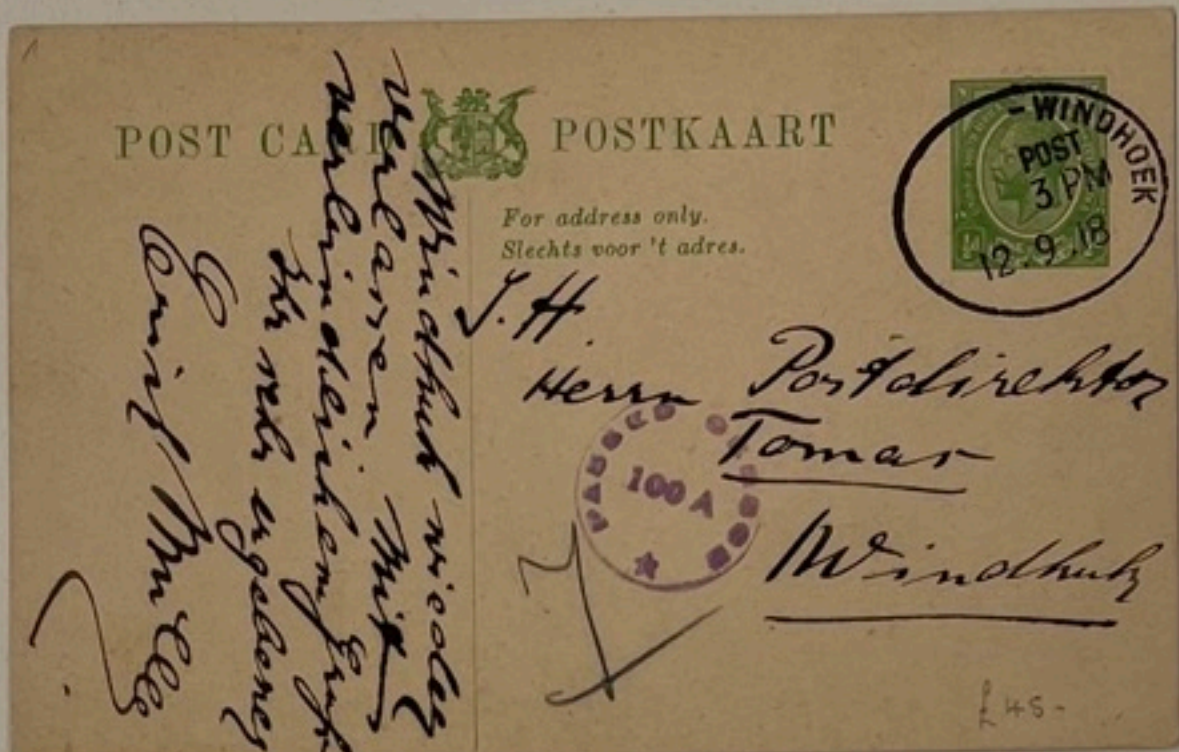 POST CARD POSTKAART
For address only.
Slechts voor 't adres.
-WINDHOEK
POST
3 PM
12.9.18
Herrn Postdirektor
Tomas
Windhuk
PASSED CENSOR
100 A
Windhuk wieder
verlassen. Mit
verbindlichem Gruß
Ihr sehr ergebener
Ernst Müller
£45-